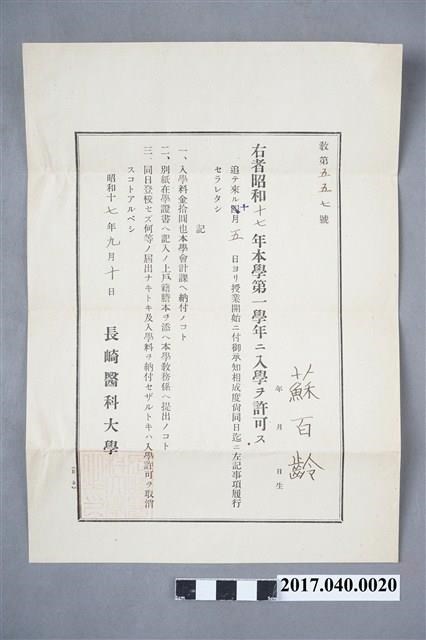 教第五五七號
蘇百齡
年 月 日生
右者昭和十七年本學第一學年ニ入學ヲ許可ス
追テ來ル十月五日ヨリ授業開始ニ付御承知相成度尚同日迄ニ左記事項履行
セラレタシ
記
一、入學料金拾圓也本學會計課ヘ納付ノコト
二、別紙在學證書ヘ記入ノ上戶籍謄本ヲ添ヘ本學敎務係ヘ提出ノコト
三、同日登校セズ何等ノ屆出ナキトキ及入學料ヲ納付セザルトキハ入學許可ヲ取消
スコトアルベシ
昭和十七年九月十日
長崎醫科大學
2017.040.0020